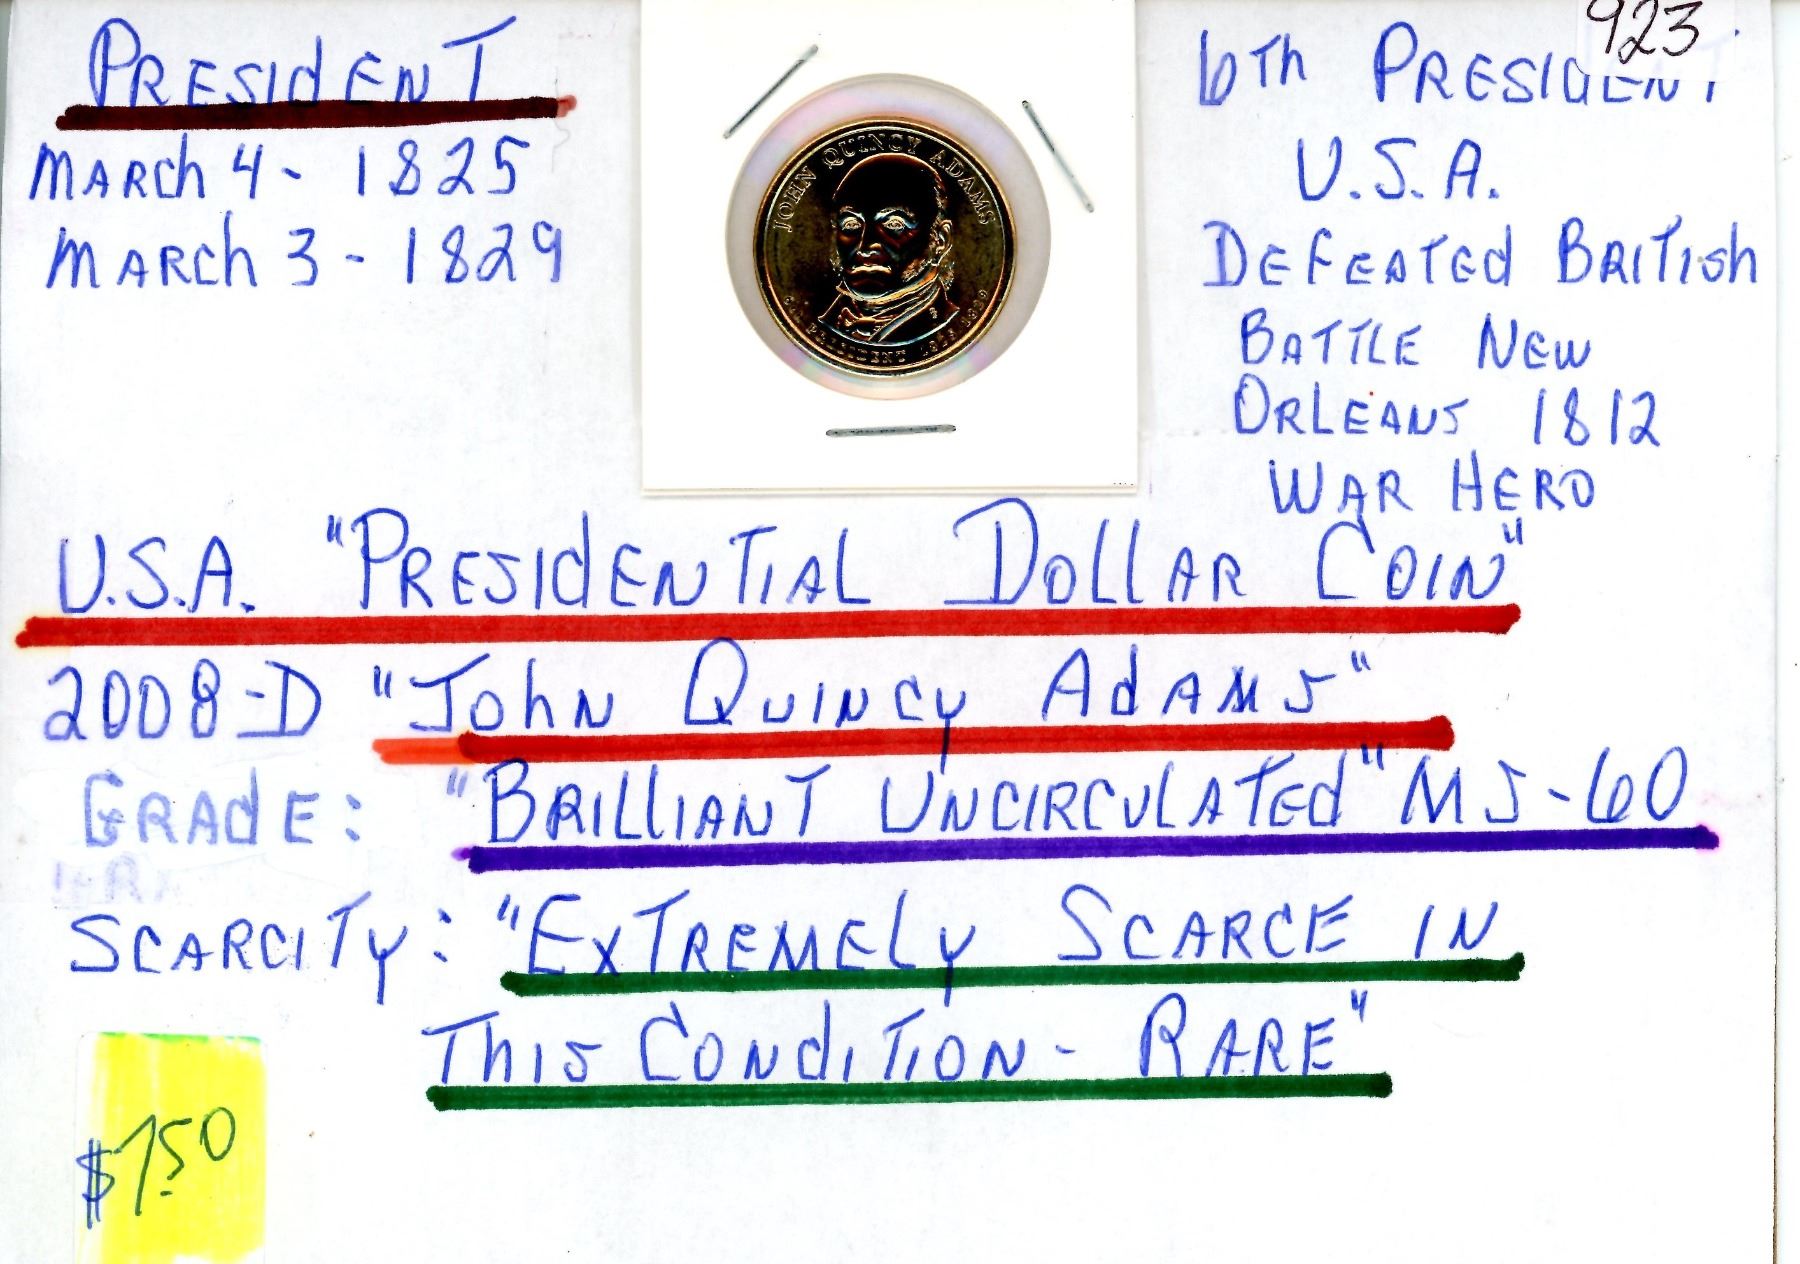 923
PRESIDENT
MARCH 4 - 1825
MARCH 3 - 1829
JOHN QUINCY ADAMS
6TH PRESIDENT 1825-1829
6TH PRESIDENT
U.S.A.
DEFEATED BRITISH
BATTLE NEW
ORLEANS 1812
WAR HERO
U.S.A. "PRESIDENTIAL DOLLAR COIN"
2008-D "JOHN QUINCY ADAMS"
GRADE: "BRILLIANT UNCIRCULATED" MS-60
SCARCITY: "EXTREMELY SCARCE IN
THIS CONDITION - RARE"
$7.50